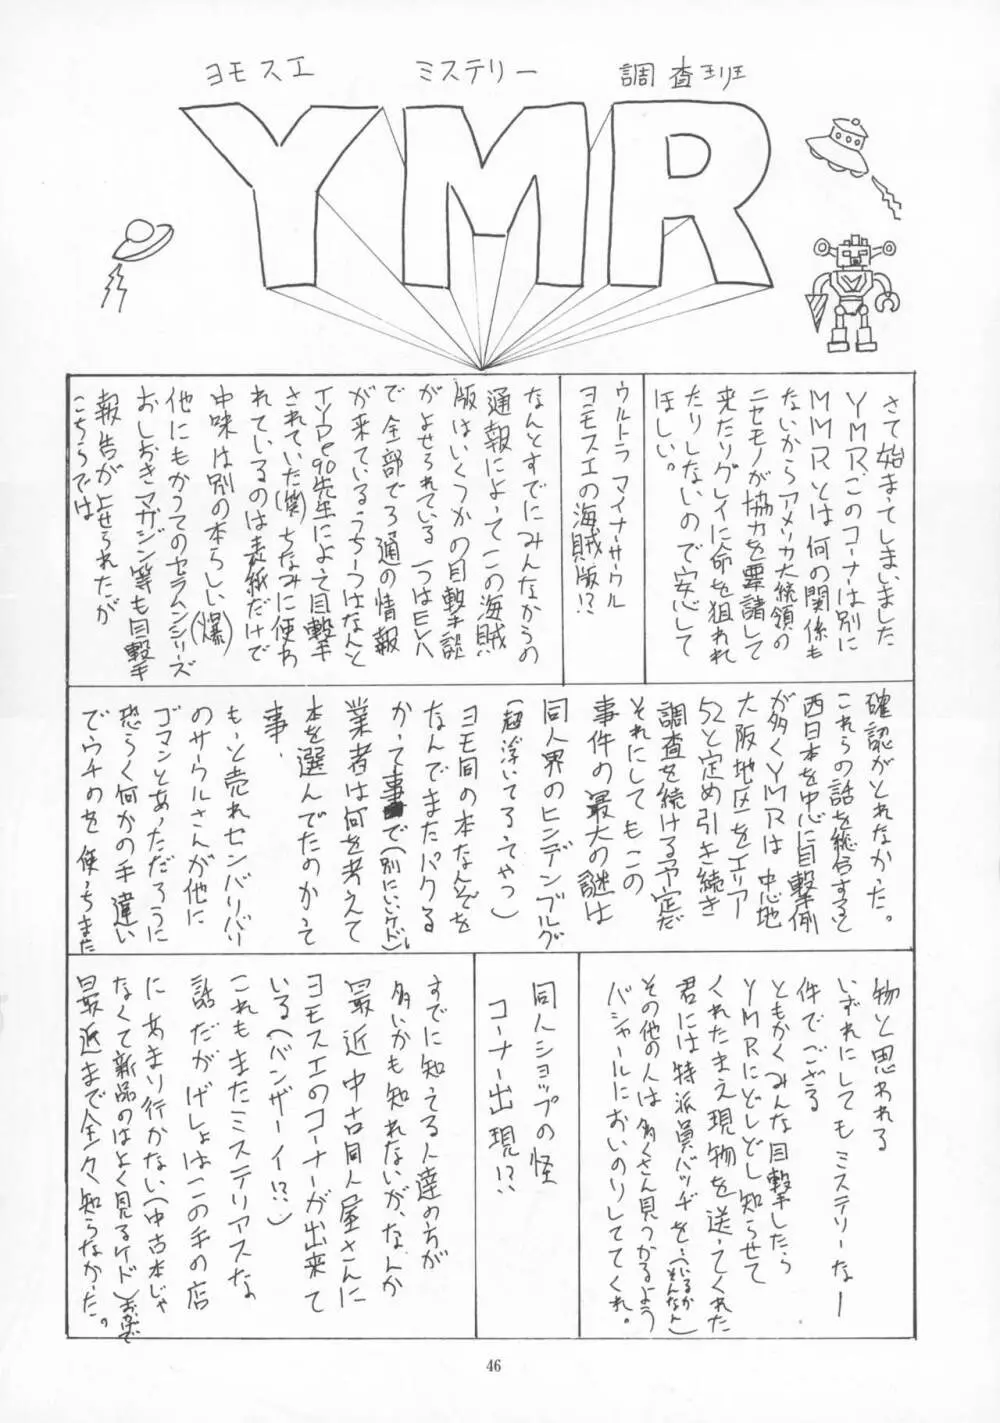 ヨモスエ ミステリー 調査班
YMR
さて始まってしまいました
YMR、このコーナーは別に
MMRとは何の関係も
ないからアメリカ大統領の
ニセモノが協力を要請して
来たりグレイに命を狙われ
たりしないので安心して
ほしい。
ウルトラマイナーサークル
ヨモスエの海賊版!?
なんとすでにみんなからの
通報によってこの海賊
版はいくつかの目撃談
がよせられている 一つはEVA
で全部で3通の情報
が来ているうち一つはなんと
TYPE90先生によって目撃
されていた(笑)ちなみに使わ
れているのは表紙だけで
中味は別の本らしい(爆)
他にもかつてのセラムンシリーズ
おしおきマガジン等も目撃
報告がよせられたが
こちらでは
確認がとれなかった。
これらの話を総合すると
西日本を中心に目撃例
が多くYMRは中心地
大阪地区をエリア
52と定め引き続き
調査を続ける予定だ
それにしてもこの
事件の最大の謎は
同人界のヒンデンブルグ
(超浮いてるってやつ)
ヨモ同の本なんぞを
なんでまたパクる
かって事で(別にいいケド)、
業者は何を考えて
本を選んでたのかって
事、
もっと売れセンバリバリ
のサークルさんが他に
ゴマンとあっただろうに
恐らく何かの手違い
でウチのを使っちまた
物と思われる
いずれにしてもミステリーな
件でござる
ともかくみんな目撃したら
YMRにどしどし知らせて
くれたまえ現物を送ってくれた
君には特派員バッヂを…(いるかそんなん)
その他の人は多くさん見つかるよう
バシャールにおいのりしててくれ。
同人ショップの怪
コーナー出現!?
すでに知ってる人達の方が
多いかも知れないが、なんか
最近中古同人屋さんに
ヨモスエのコーナーが出来て
いる(バンザーイ!?)
これもまたミステリアスな
話だがげしょはこの手の店
にあまり行かない(中古本じゃ
なくて新品のはよく見るケド)おかげで
最近まで全々知らなかった。
46